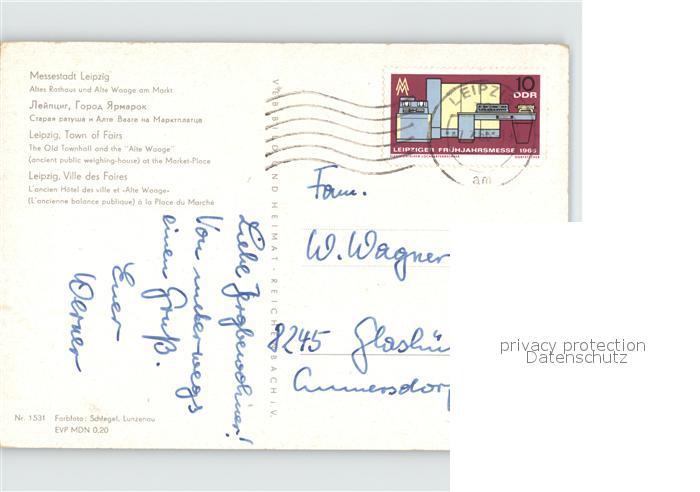 Messestadt Leipzig
Altes Rathaus und Alte Waage am Markt
Лейпциг, Город Ярмарок
Старая ратуша и Алте Ваате на Марктплатце
Leipzig, Town of Fairs
The Old Townhall and the "Alte Waage"
(ancient public weighing-house) at the Market-Place
Leipzig, Ville des Foires
L'ancien Hôtel des ville et «Alte Waage»
(L'ancienne balance publique) à la Place du Marché
10
DDR
LEIPZIGER FRÜHJAHRSMESSE 1966
LEIPZ
am
VEB BILD UND HEIMAT · REICHENBACH I. V.
Fam.
W. Wagner
8245 Glashü
Cunnersdorf
Liebe
Von unterwegs
einen Gruß.
Euer
Werner
Nr. 1531 Farbfoto: Schlegel, Lunzenau
EVP MDN 0,20
privacy protection
Datenschutz